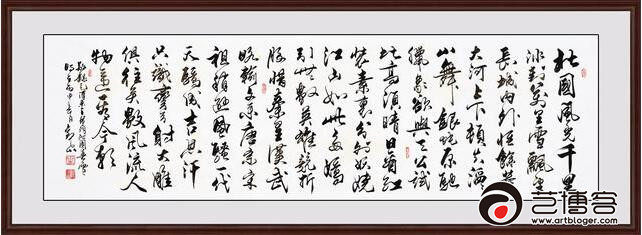 北國風光千里
冰封萬里雪飄望
長城内外惟餘莽
大河上下頓失滔
山舞銀蛇原馳
臘象欲與天公試
比高須晴日看紅
裝素裹分外妖嬈
江山如此多嬌
引無數英雄競折
腰惜秦皇漢武
略輸文采唐宗宋
祖稍遜風騷一代
天驕成吉思汗
只識彎弓射大雕
俱往矣數風流人
物還看今朝
艺博客
www.artbloger.com